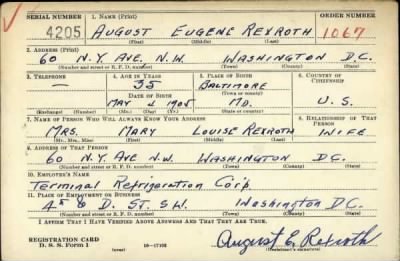 SERIAL NUMBER 1. NAME (Print) ORDER NUMBER
4205 AUGUST EUGENE REXROTH 1067
(First) (Middle) (Last)
2. ADDRESS (Print)
60 N.Y. AVE. N.W. WASHINGTON D.C.
(Number and street or R. F. D. number) (Town) (County) (State)
3. TELEPHONE 4. AGE IN YEARS 5. PLACE OF BIRTH 6. COUNTRY OF CITIZENSHIP
— 35 BALTIMORE
(Town or county)
DATE OF BIRTH
MAY 4 1905 MD. U.S.
(Exchange) (Number) (Mo.) (Day) (Yr.) (State or country)
7. NAME OF PERSON WHO WILL ALWAYS KNOW YOUR ADDRESS 8. RELATIONSHIP OF THAT PERSON
MRS. MARY LOUISE REXROTH WIFE
(Mr., Mrs., Miss) (First) (Middle) (Last)
9. ADDRESS OF THAT PERSON
60 N.Y. AVE N.W. WASHINGTON D.C.
(Number and street or R. F. D. number) (Town) (County) (State)
10. EMPLOYER'S NAME
Terminal Refrigeration Corp.
11. PLACE OF EMPLOYMENT OR BUSINESS
D. ST. SW. Washington D.C.
(Number and street or R. F. D. number) (Town) (County) (State)
I AFFIRM THAT I HAVE VERIFIED ABOVE ANSWERS AND THAT THEY ARE TRUE.
REGISTRATION CARD
D. S. S. Form 1 (over) 16—17105 August E. Rexroth